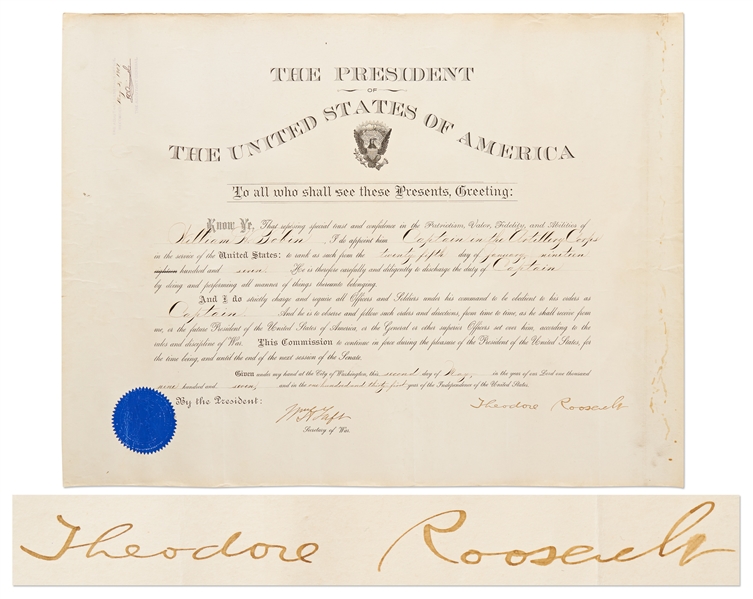 THE PRESIDENT
OF
THE UNITED STATES OF AMERICA
To all who shall see these Presents, Greeting:
Know Ye, That reposing special trust and confidence in the Patriotism, Valor, Fidelity, and Abilities of
William F. , I do appoint him Captain in the Artillery Corps
in the service of the United States: to rank as such from the twenty fifth day of January nineteen
eighteen hundred and seven He is therefore carefully and diligently to discharge the duty of Captain
by doing and performing all manner of things thereunto belonging.
And I do strictly charge and require all Officers and Soldiers under his command to be obedient to his orders as
Captain And he is to observe and follow such orders and directions, from time to time, as he shall receive from
me, or the future President of the United States of America, or the General or other superior Officers set over him, according to the
rules and discipline of War. This Commission to continue in force during the pleasure of the President of the United States, for
the time being, and until the end of the next session of the Senate.
Given under my hand at the City of Washington, this second day of May, in the year of our Lord one thousand
nine hundred and seven, and in the one hundred and thirty first year of the Independence of the United States.
By the President:
Theodore Roosevelt
Wm H Taft
Secretary of War.
Theodore Roosevelt